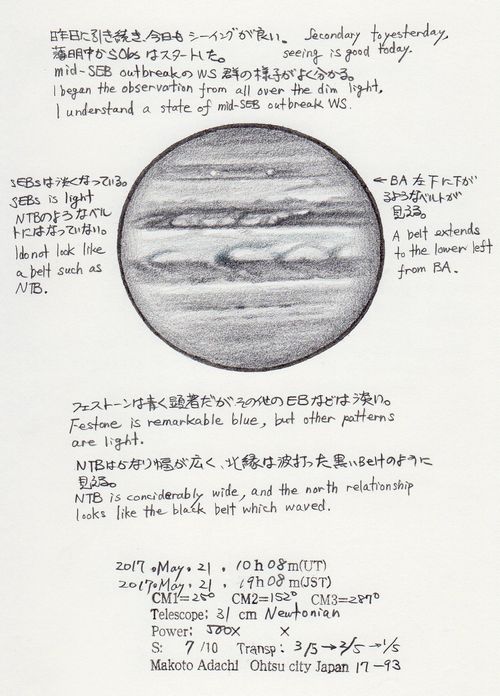 昨日に引き続き、今日もシーイングが良い。 Secondary to yesterday,
薄明中からObsはスタートした。 seeing is good today.
mid-SEB outbreakのWS群の様子がよく分かる。
I began the observation from all over the dim light,
I understand a state of mid-SEB outbreak WS.
SEBsは淡くなっている。
SEBs is light
NTBのようなベル
トにはなっていない。
I do not look like
a belt such as
NTB.
← BA 左下に下が
るようなベルトが
見える。
A belt extends
to the lower left
from BA.
フェストーンは青く顕著だがその他のEBなどは淡い。
Festone is remarkable blue, but other patterns
are light.
NTBはかなり幅が広く、北縁は波打った黒いBeltのように
見える。
NTB is conciderably wide, and the north relationship
looks like the black belt which waved.
2017.May.21, 10h08m(UT)
2017.May.21, 19h08m(JST)
CM1=25° CM2=152° CM3=287°
Telescope: 31 cm Newtonian
Power: 500X X
S: 7/10 Transp: 3/5→2/5→1/5
Makoto Adachi Ohtsu city Japan 17-93